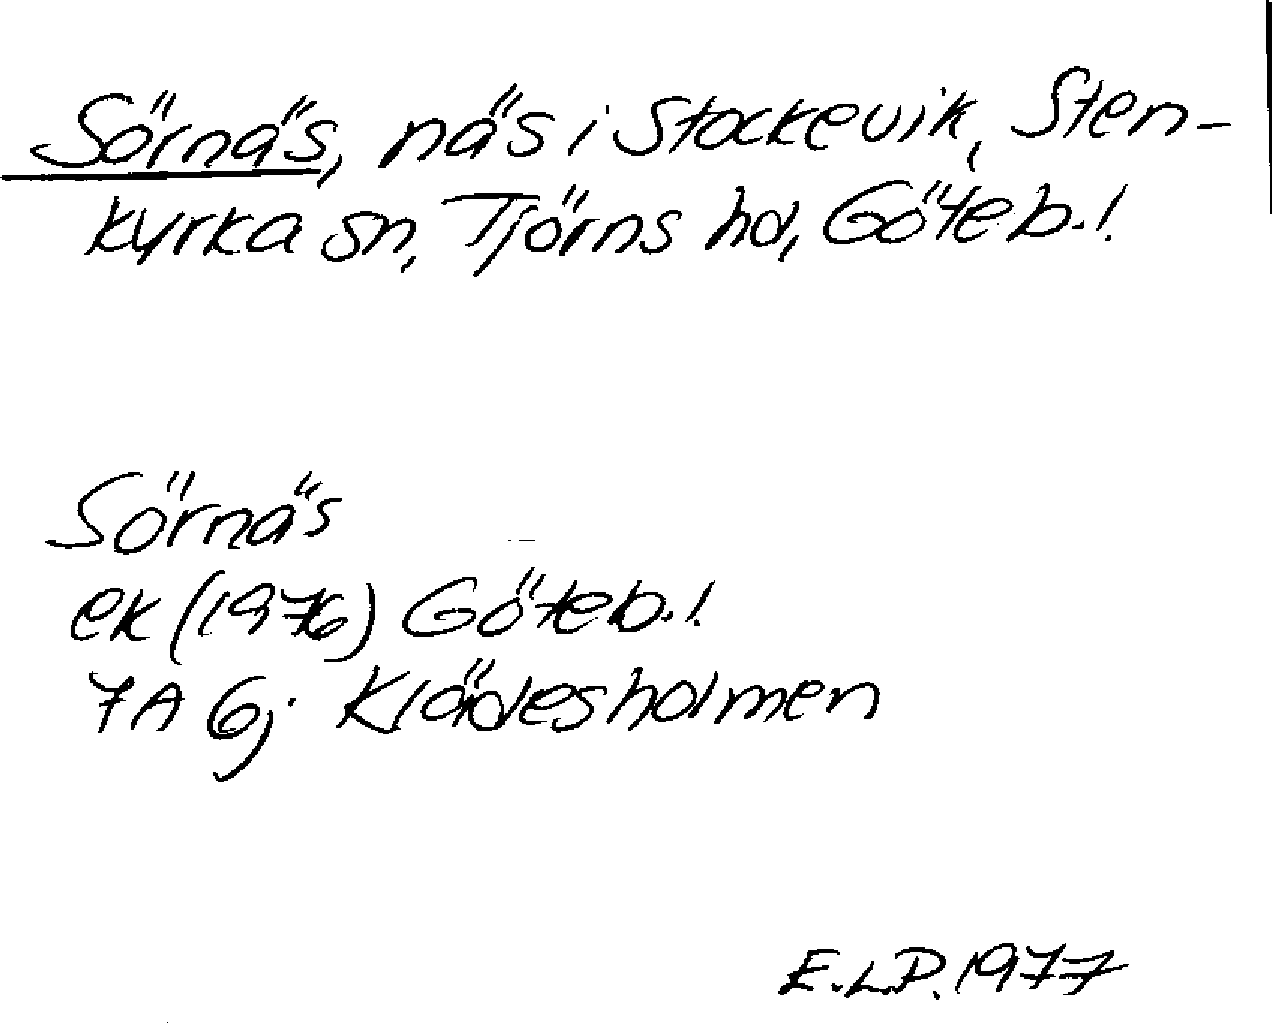 Sörnäs, näs i Stockevik, Sten-
kyrka sn, Tjörns hd, Göteb.l.
Sörnäs
ek (1976) Göteb.l.
7A 6j. Klädesholmen
E.L.P. 1977